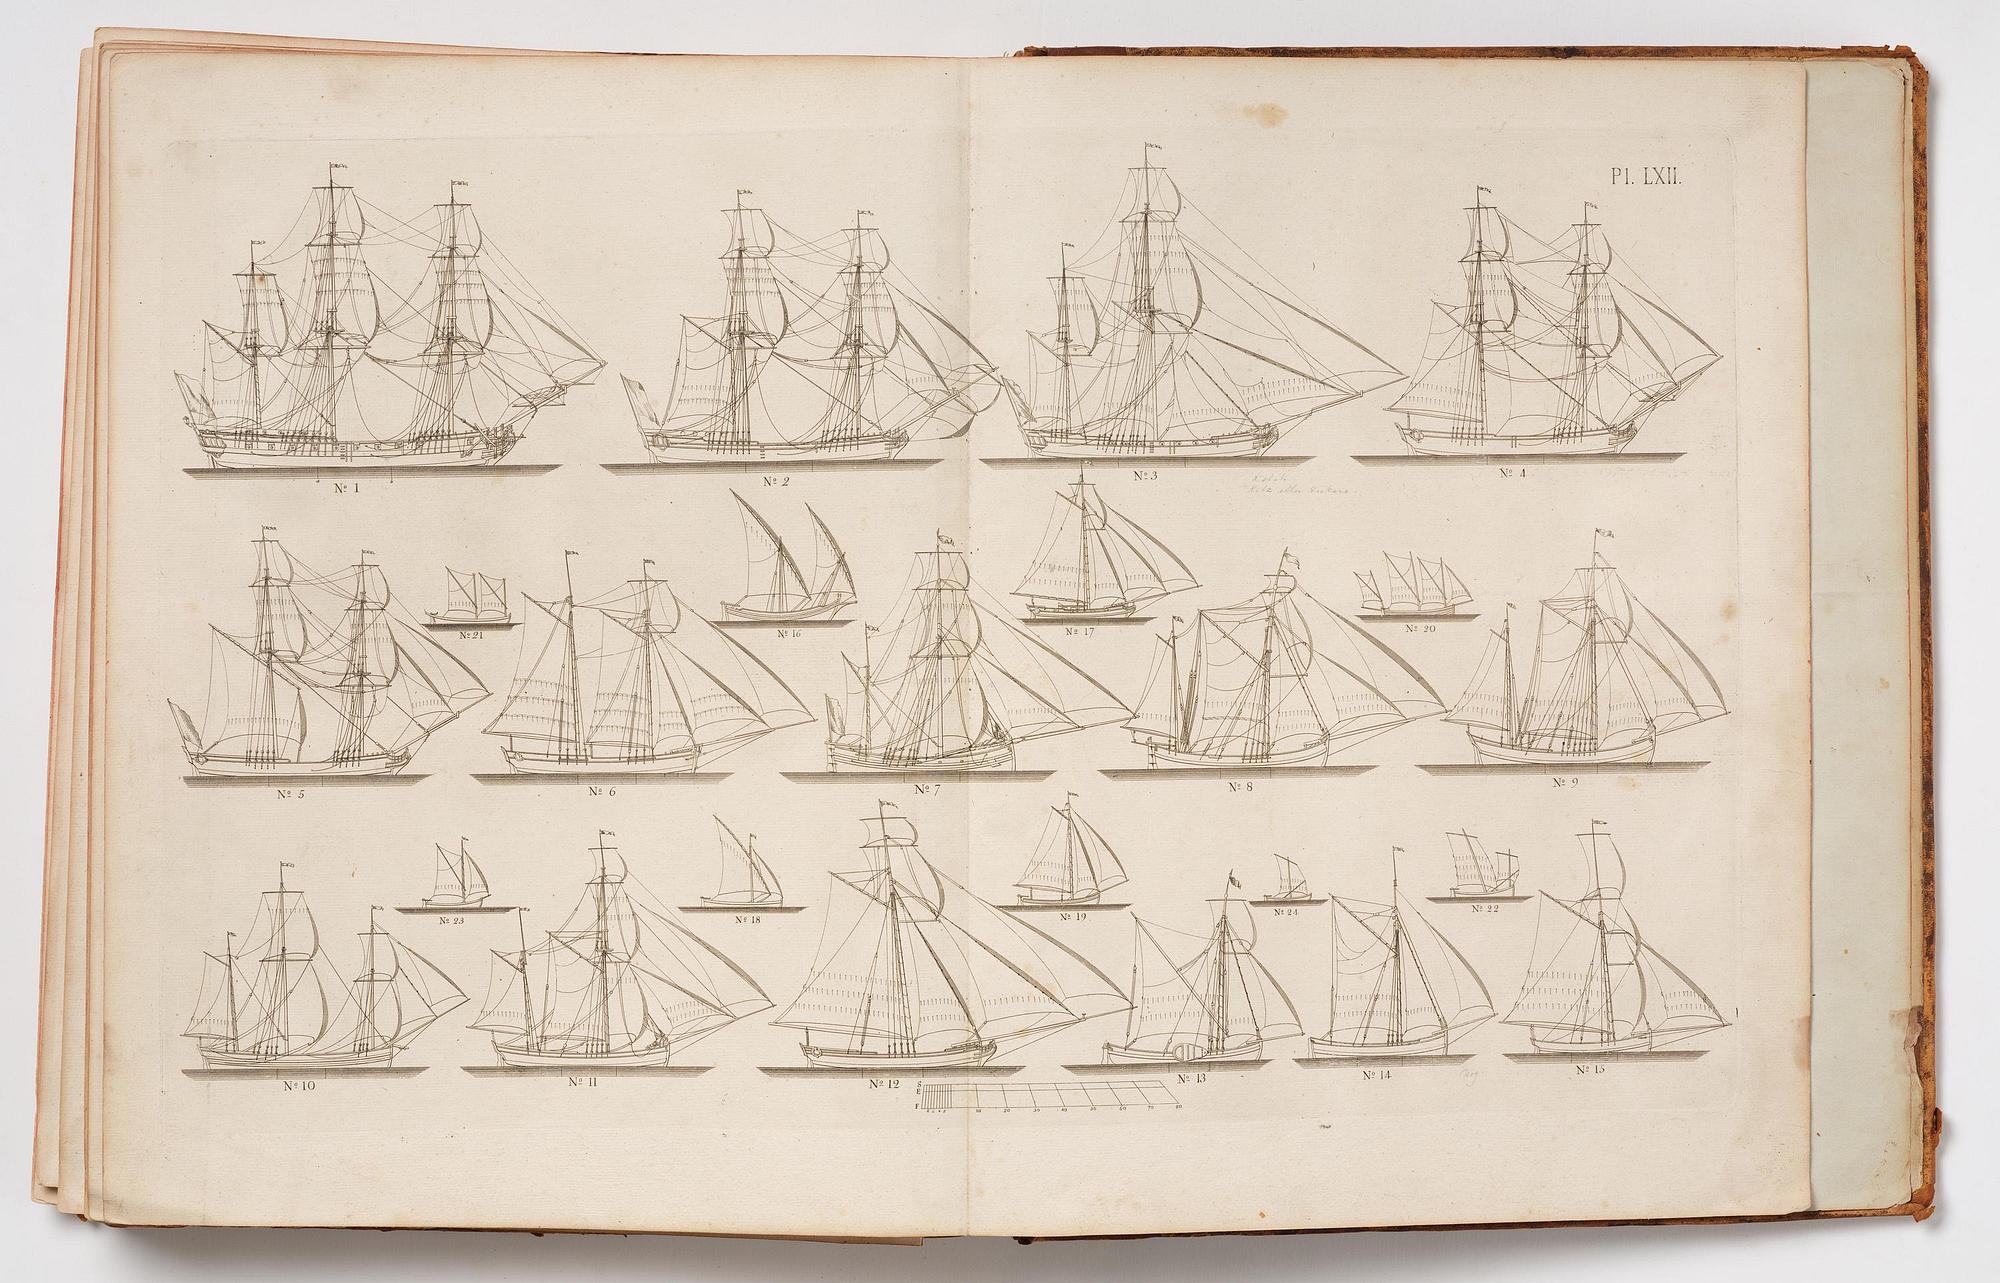 Pl. LXII.
Nº 1
Nº 2
Nº 3
Nº 4
Nº 21
Nº 16
Nº 17
Nº 20
Nº 5
Nº 6
Nº 7
Nº 8
Nº 9
Nº 23
Nº 18
Nº 19
Nº 24
Nº 22
Nº 10
Nº 11
Nº 12
Nº 13
Nº 14
Nº 15
S
E
F
10 20 30 40 50 60 70 80